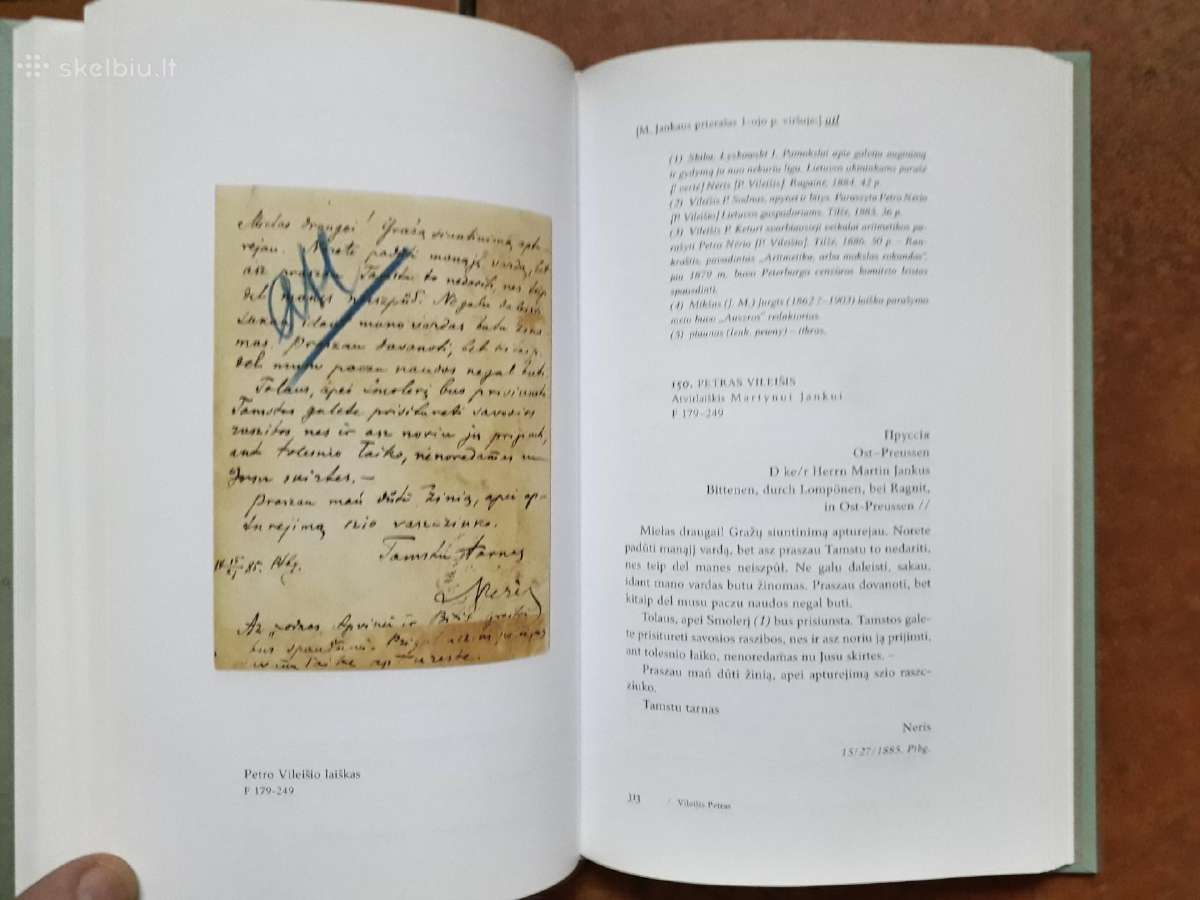 skelbiu.lt
Mielas draugai! Gražų siuntinimą aptu-
rejau. Norete padůti manąjį vardą, bet
asz praszau Tamstu to nedariti, nes teip
del manes neiszpůl. Ne galu daleisti,
sakau, idant mano vardas butu žino-
mas. Praszau dovanoti, bet kitaip
del musu paczu naudos negal buti.
Tolaus, apei Smolerį bus prisiunsta.
Tamstos galete prisitureti savosios
raszibos nes ir asz noriu ją prijimti,
ant tolesnio łaiko, nenoredamas nu
Jusu skirtes. —
Praszau mań důti žinią, apei ap-
turejimą szio raszcziuko.
Tamstu tarnas
Neris
Petro Vileišio laiškas
F 179-249
[M. Jankaus prierašas 1-ojo p. viršuje:] atl
(1) Skiba, Łyskowski I. Pamokslai apie galviju auginimą
ir gydymą ju nuo nekuriu ligu. Lietuvos ukininkams parašė
[! vertė] Neris [P. Vileišis]. Ragainė, 1884. 42 p.
(2) Vileišis P. Sodnas, apynei ir bitys. Paraszyta Petro Nerio
[P. Vileišio] Lietuvos gospadoriams. Tilžė, 1885. 36 p.
(3) Vileišis P. Keturi svarbiausieji veikalai aritmetikos pa-
rašyti Petro Nerio [P. Vileišio]. Tilžė, 1886. 50 p. – Ran-
kraštis, pavadintas „Aritmetika, arba mokslas rokundos",
jau 1879 m. buvo Peterburgo cenzūros komiteto leistas
spausdinti.
(4) Mikšas (J. M.) Jurgis (1862 ?–1903) laiško parašymo
metu buvo „Auszros" redaktorius.
(5) piaunas (lenk. pewny) – tikras.
150. PETRAS VILEIŠIS
Atvirlaiškis Martynui Jankui
F 179–249
Пруссія
Ost–Preussen
D ke/r Herrn Martin Jankus
Bittenen, durch Lompönen, bei Ragnit,
in Ost-Preussen //
Mielas draugai! Gražų siuntinimą apturejau. Norete
padůti manąjį vardą, bet asz praszau Tamstu to nedariti,
nes teip del manes neiszpůl. Ne galu daleisti, sakau,
idant mano vardas butu žinomas. Praszau dovanoti, bet
kitaip del musu paczu naudos negal buti.
Tolaus, apei Smolerį (1) bus prisiunsta. Tamstos gale-
te prisitureti savosios raszibos, nes ir asz noriu ją prijimti,
ant tolesnio łaiko, nenoredamas nu Jusu skirtes. –
Praszau mań důti žinią, apei apturejimą szio raszc-
ziuko.
Tamstu tarnas
Neris
15/27/1885. Ptbg.
313 / Vileišis Petras